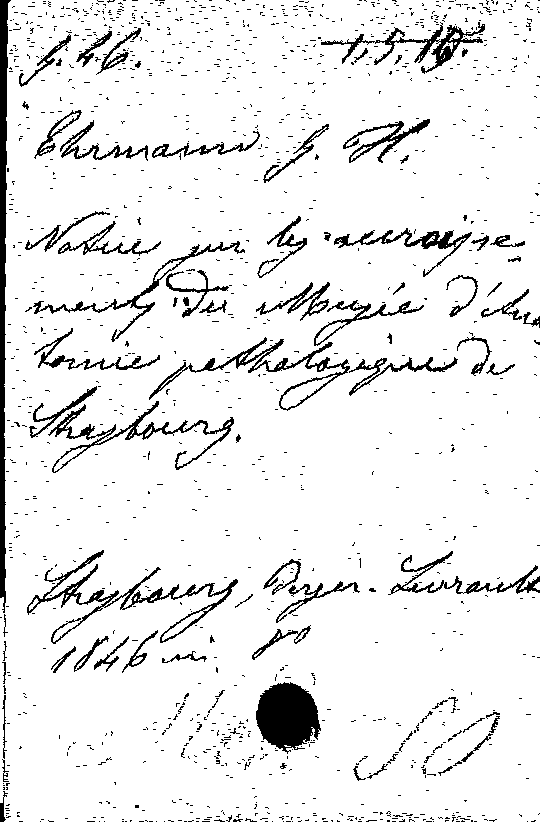 g. 46. 1.5.19.
Ehrmann G. H.
Notice sur les accroisse-
ments du Musée d'Ana
tomie pathologique de
Strasbourg.
Strasbourg, Berger-Levrault
1846 in 8o